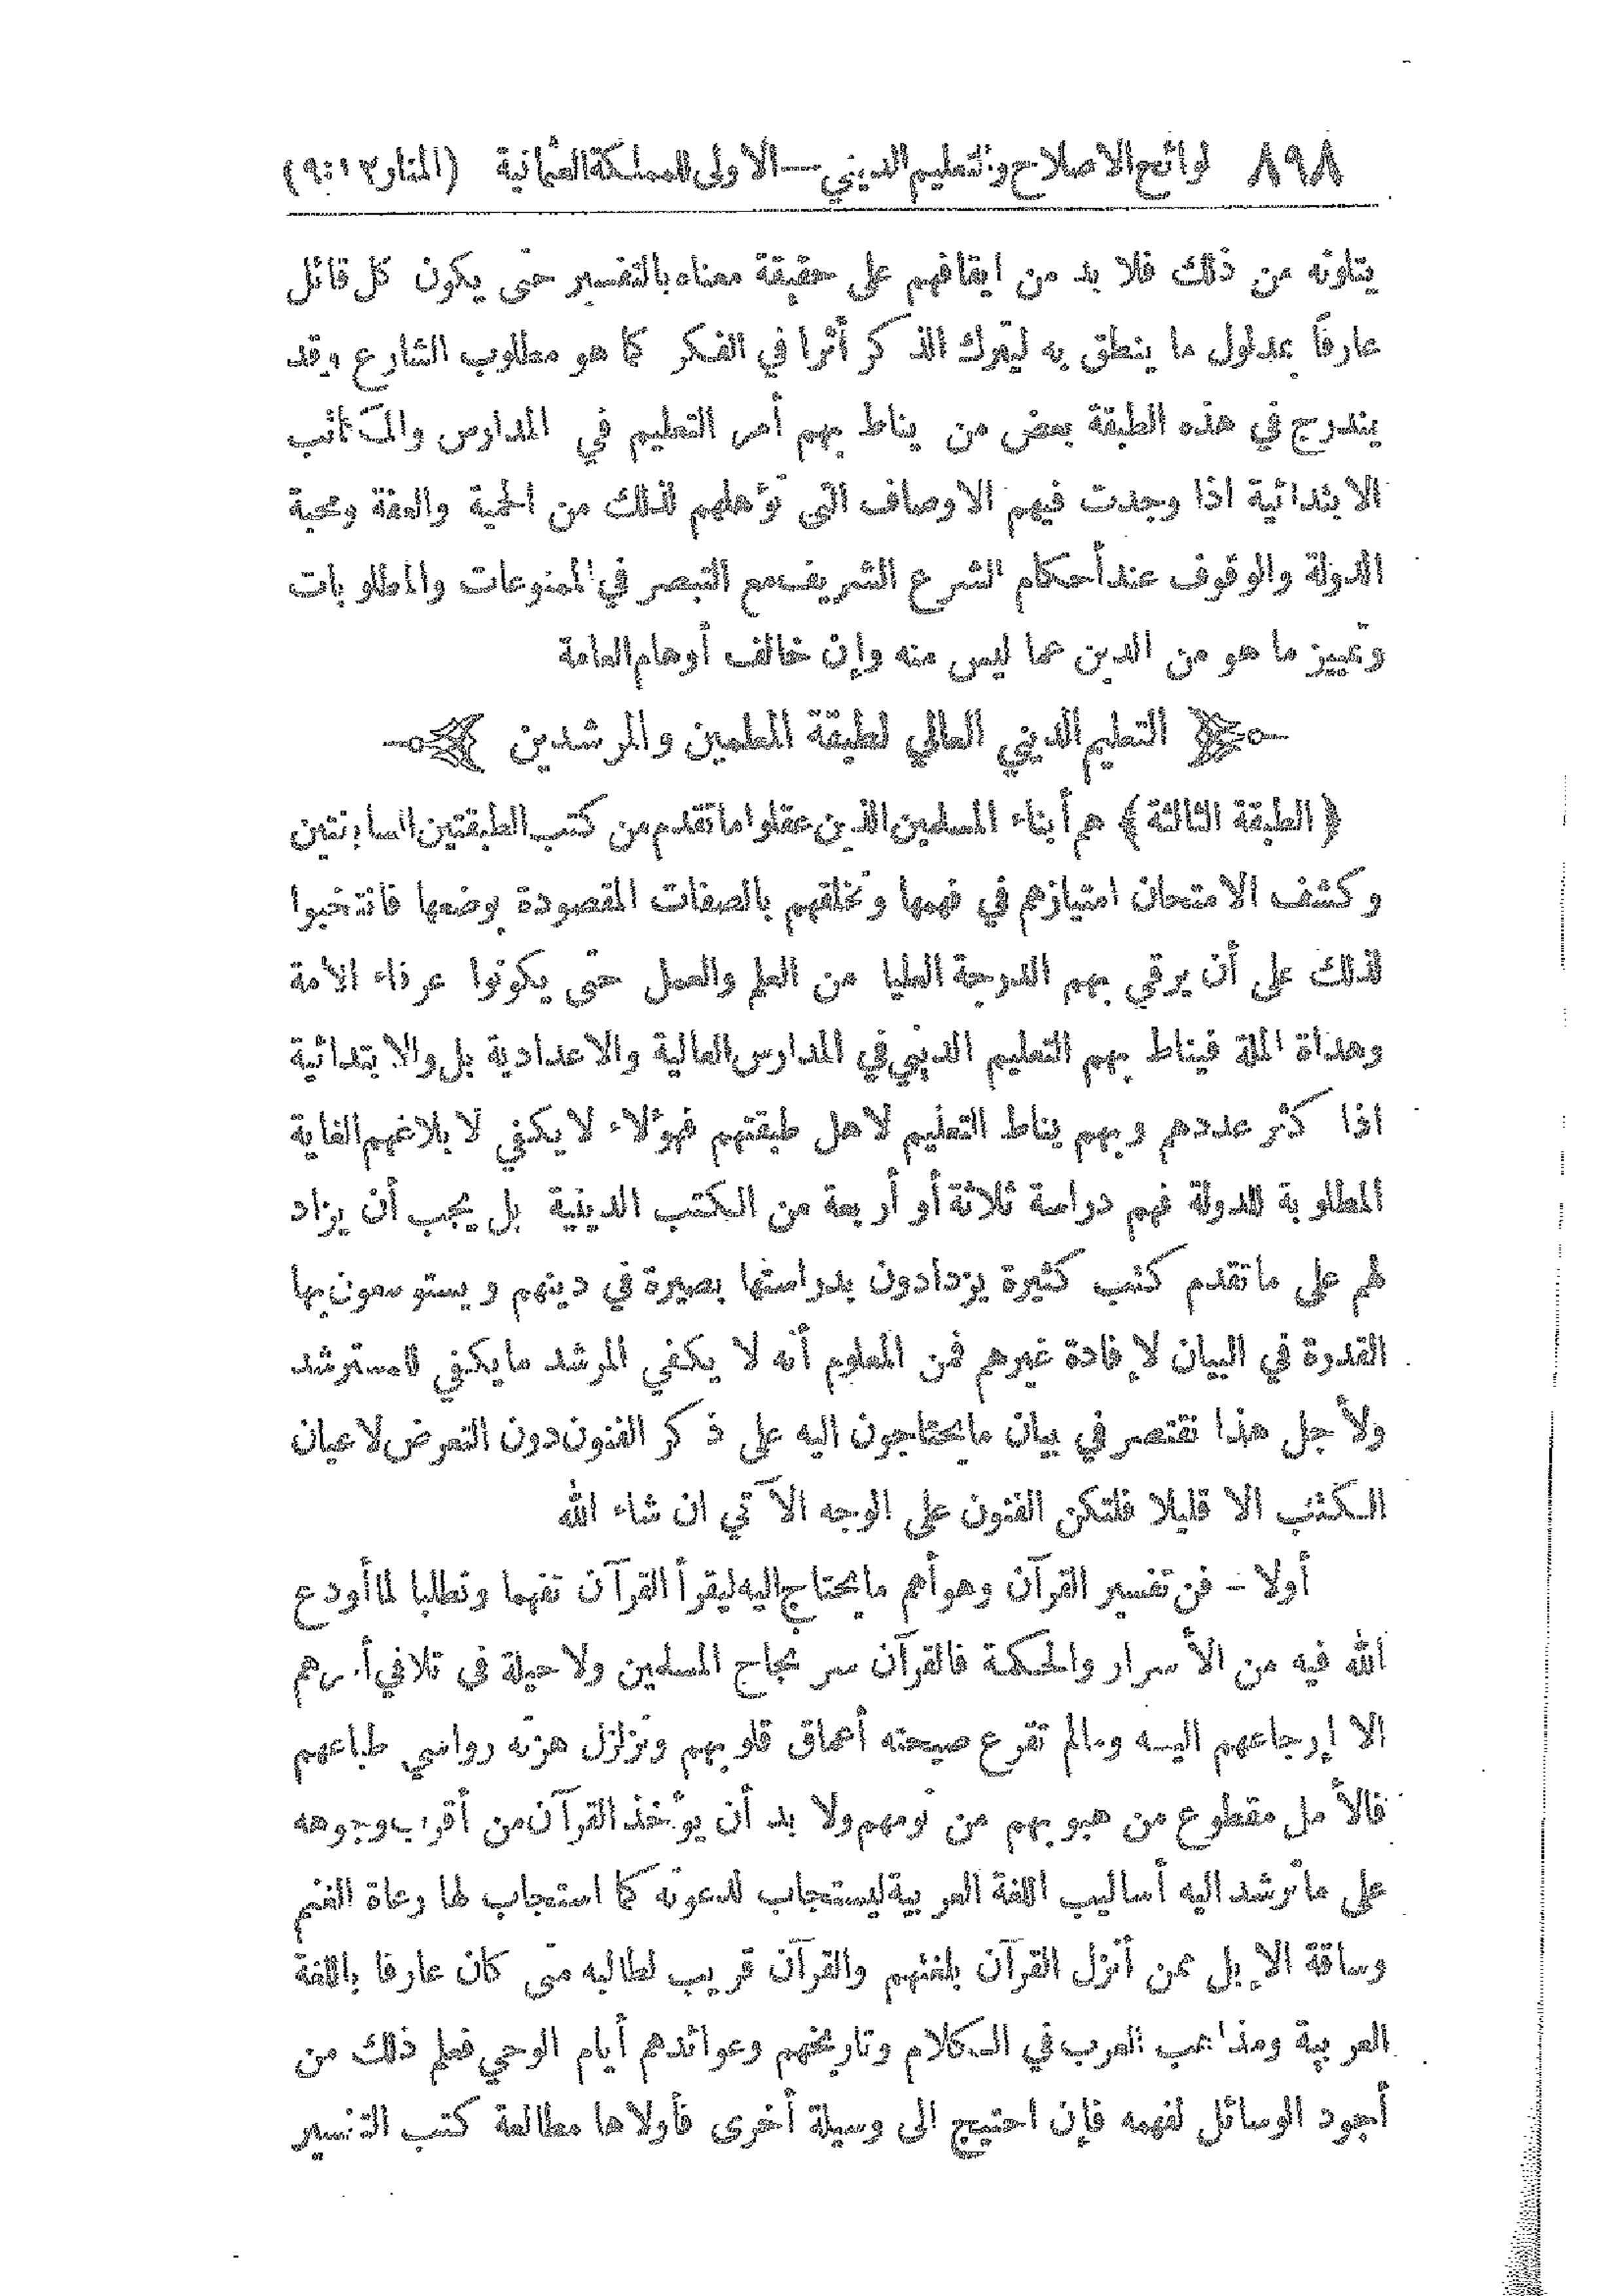 ٨٩٨ لوائح الاصلاح والتعليم الديني — الاولى للمملكة العثمانية (المنار ١٢ : ٩)
يتلونه من ذلك فلا بد من ايقافهم على حقيقة معناه بالتفسير حتى يكون كل قائل
عارفاً بمدلول ما ينطق به ليترك الذكر أثرا في الفكر كما هو مطلوب الشارع وقد
يندرج في هذه الطبقة بعض من يناط بهم أمر التعليم في المدارس والمكاتب
الابتدائية اذا وجدت فيهم الاوصاف التى تؤهلهم لذلك من الحمية والعفة ومحبة
الدولة والوقوف عند أحكام الشرع الشريف مع التبصر في الممنوعات والمطلوبات
وتمييز ما هو من الدين عما ليس منه وإن خالف أوهام العامة
التعليم الديني العالي لطبقة المعلمين والمرشدين
﴿ الطبقة الثالثة ﴾ هم أبناء المسلمين الذين عقلوا ما تقدم من كتب الطبقتين السابقتين
وكشف الامتحان امتيازهم في فهمها وتخلقهم بالصفات المقصودة بوضعها فانتخبوا
لذلك على أن يرقي بهم الدرجة العليا من العلم والعمل حتى يكونوا عرفاء الامة
وهداة الملة فيناط بهم التعليم الديني في المدارس العالية والاعدادية بل والابتدائية
اذا كثر عددهم وبهم يناط التعليم لاهل طبقتهم فهؤلاء لا يكفي لا بلاغهم الغاية
المطلوبة للدولة فهم دراسة ثلاثة أو أربعة من الكتب الدينية بل يجب أن يزاد
لهم على ما تقدم كتب كثيرة يزدادون بدراستها بصيرة في دينهم ويستوسعون بها
القدرة في البيان لإفادة غيرهم فمن المعلوم أنه لا يكفي المرشد ما يكفي للمسترشد
ولأجل هذا نقتصر في بيان ما يحتاجون اليه على ذكر الفنون دون التعرض لاعيان
الكتب الا قليلا فلتكن الفنون على الوجه الآتي ان شاء الله
أولا – فن تفسير القرآن وهو أهم ما يحتاج اليه ليقرأ القرآن تفهما وتطلبا لما أودع
الله فيه من الأسرار والحكمة فالقرآن سر نجاح المسلمين ولا حيلة في تلافي أمرهم
الا إرجاعهم اليه وما لم تقرع صيحته أعماق قلوبهم وتزلزل هزته رواسي طباعهم
فالأمل مقطوع من هبوبهم من نومهم ولا بد أن يؤخذ القرآن من أقرب وجوهه
على ما ترشد اليه أساليب اللغة العربية ليستجاب لدعوته كما استجاب لها رعاة الغنم
وساقة الإبل ممن أنزل القرآن بلغتهم والقرآن قريب لطالبه متى كان عارفا باللغة
العربية ومذاهب العرب في الكلام وتاريخهم وعوائدهم أيام الوحي فعلم ذلك من
أجود الوسائل لفهمه فإن احتيج الى وسيلة أخرى فأولاها مطالعة كتب التفسير